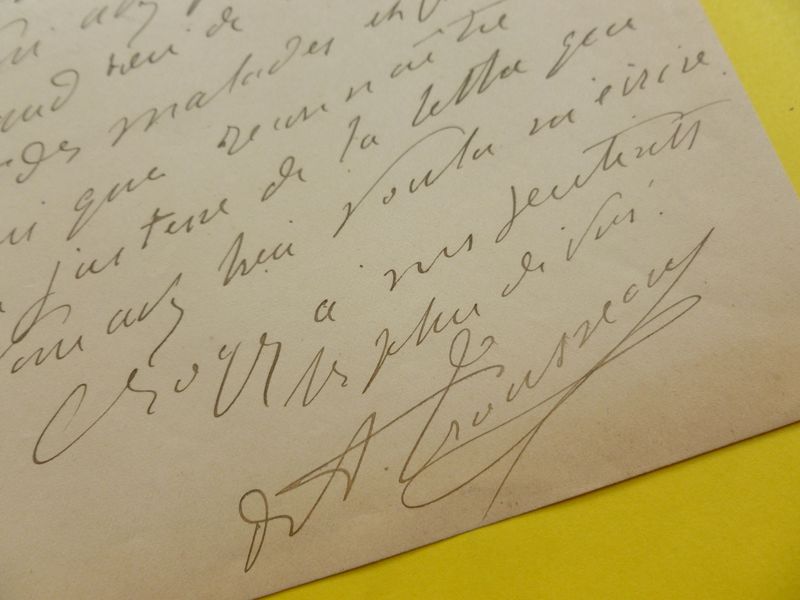 rien de
des malades et
que reconnaître
justesse de la lettre que
avez bien voulu m'écrire.
Croyez à mes sentiments
les plus dévoués.
Dr A. Trousseau